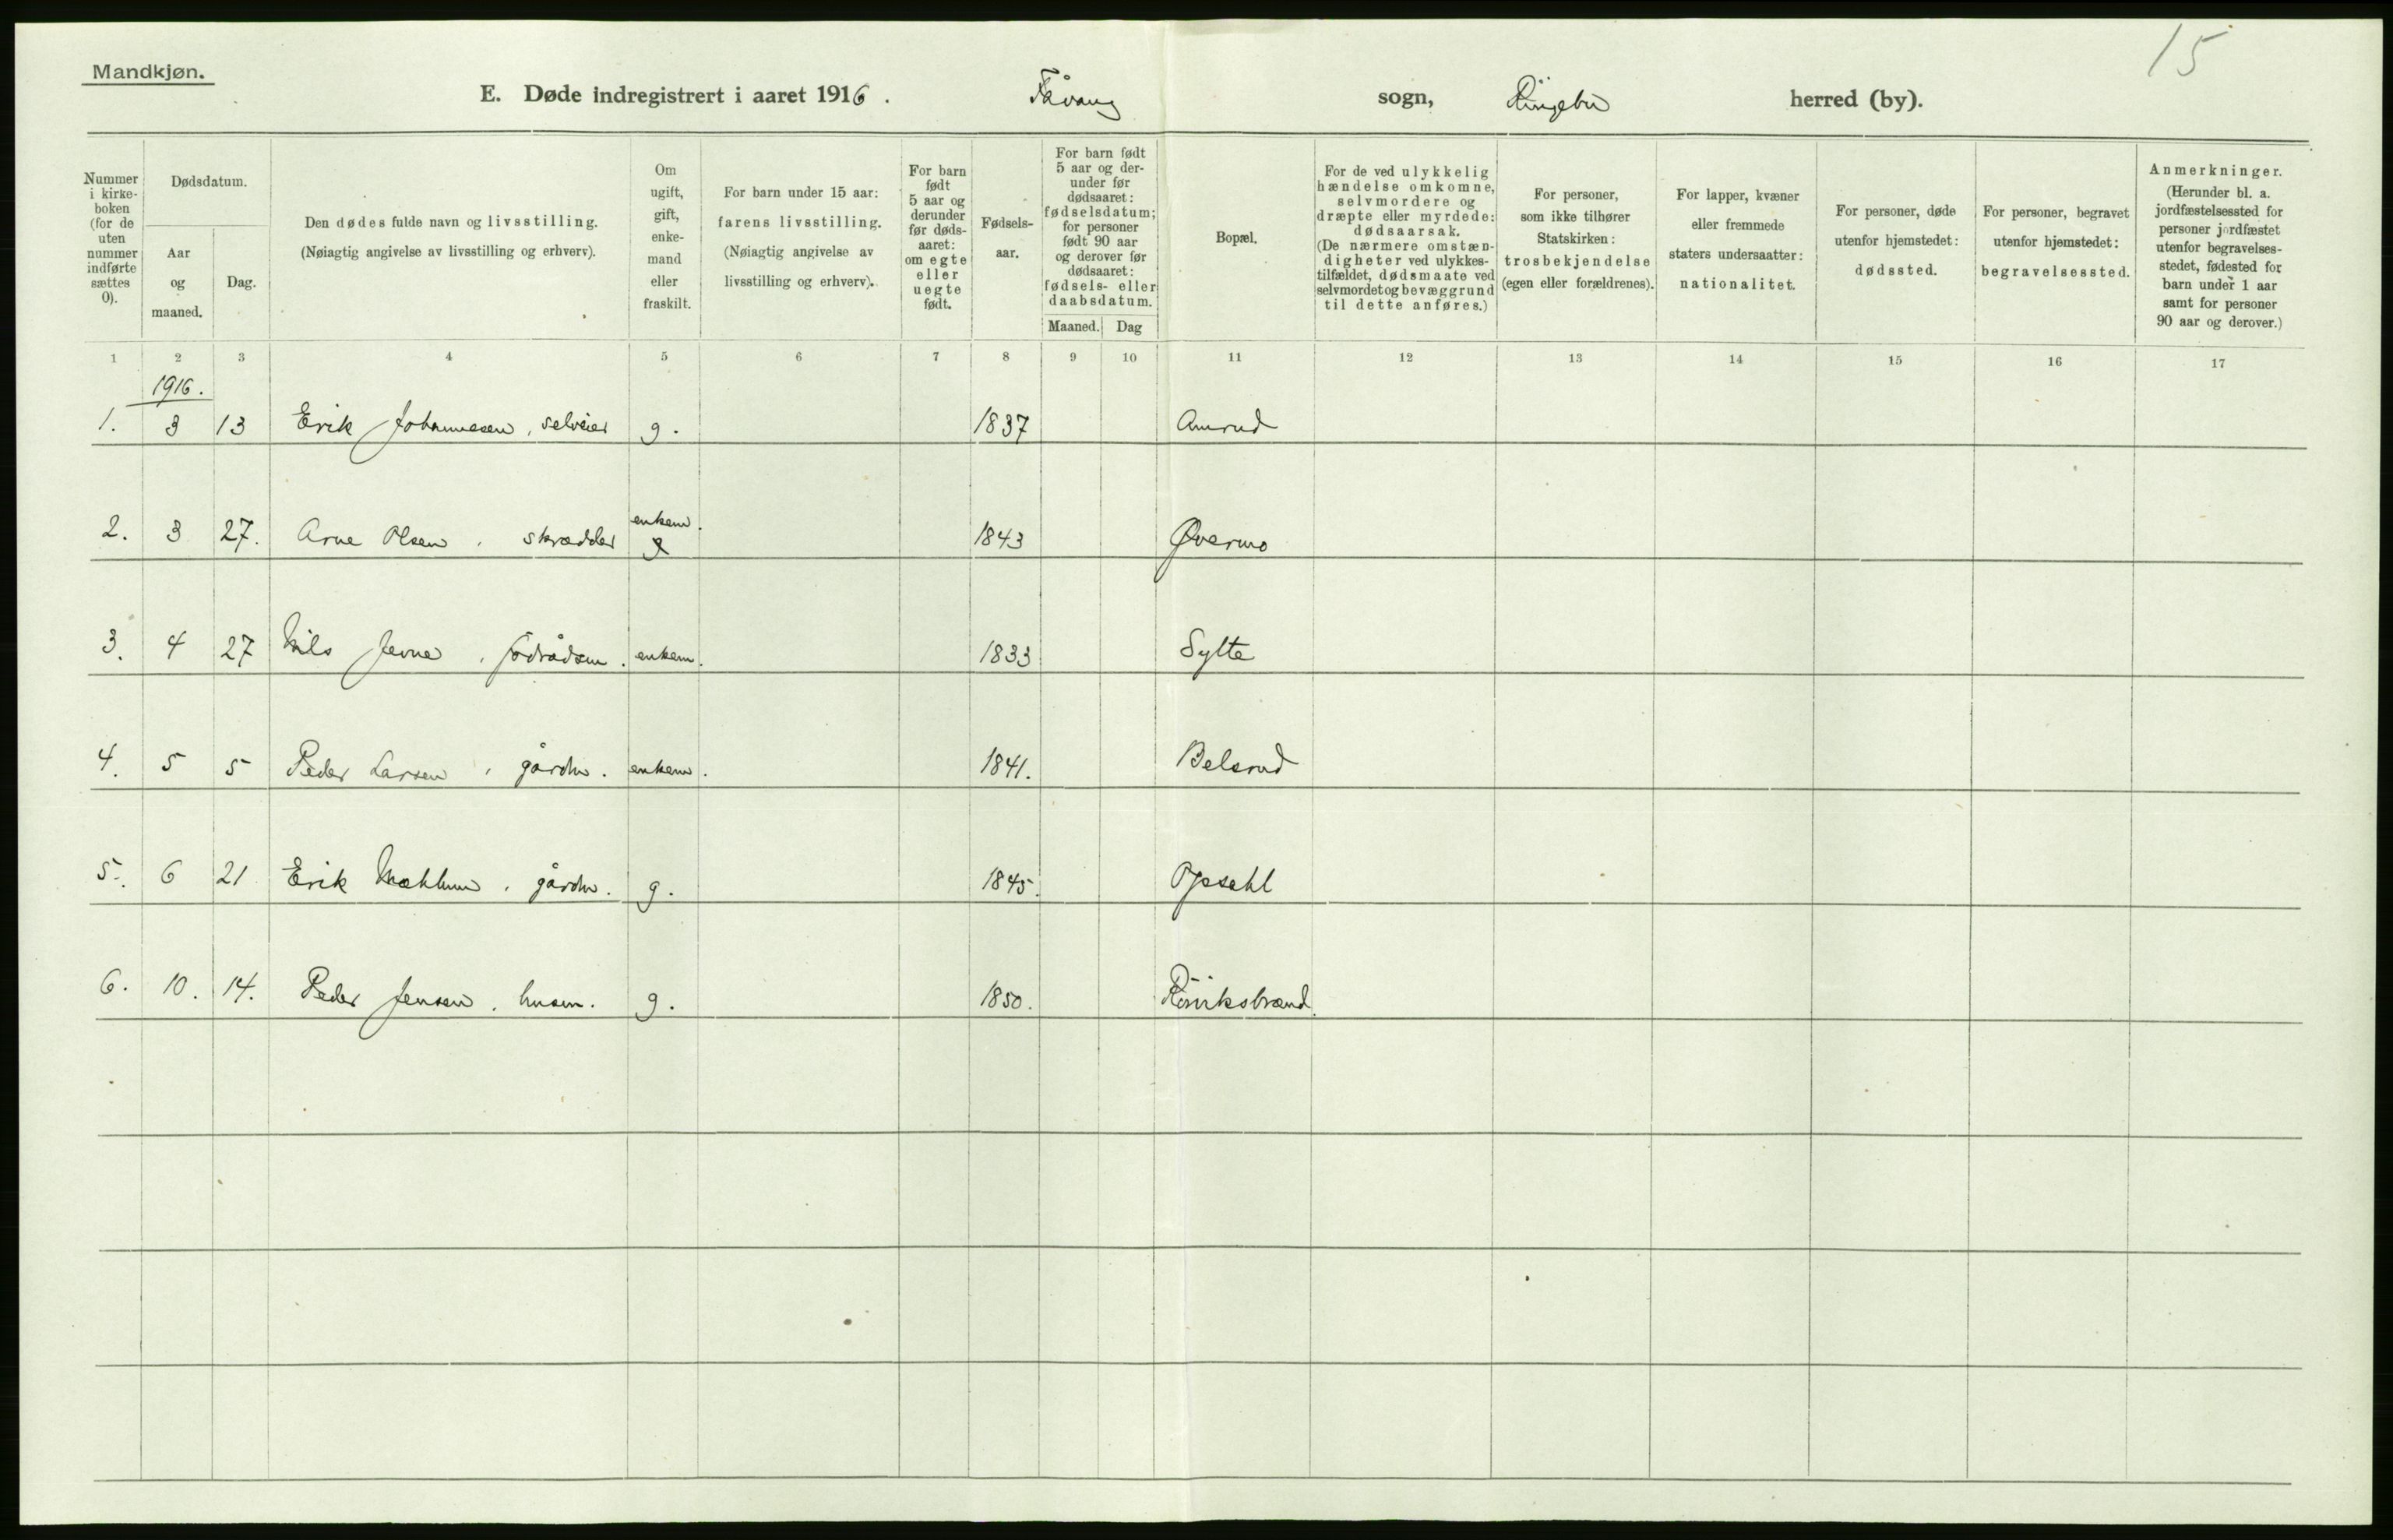 15
Mandkjøn.
E. Døde indregistrert i aaret 1916. Fåvang sogn, Ringebu herred (by).
Nummer i kirke-boken (for de uten nummer indførte sættes 0).
Dødsdatum.
Aar og maaned.
Dag.
Den dødes fulde navn og livsstilling.
(Nøiagtig angivelse av livsstilling og erhverv).
Om ugift, gift, enke-mand eller fraskilt.
For barn under 15 aar: farens livsstilling. (Nøiagtig angivelse av livsstilling og erhverv).
For barn født 5 aar og derunder før døds-aaret: om egte eller uegte født.
Fødsels-aar.
For barn født 5 aar og der-under før dødsaaret: fødselsdatum; for personer født 90 aar og derover før dødsaaret: fødsels- eller daabsdatum.
Maaned. Dag
Bopæl.
For de ved ulykkelig hændelse omkomne, selvmordere og dræpte eller myrdede: dødsaarsak. (De nærmere omstæn-digheter ved ulykkes-tilfældet, dødsmaate ved selvmordet og bevæggrund til dette anføres.)
For personer, som ikke tilhører Statskirken: trosbekjendelse (egen eller forældrenes).
For lapper, kvæner eller fremmede staters undersaatter: nationalitet.
For personer, døde utenfor hjemstedet: dødssted.
For personer, begravet utenfor hjemstedet: begravelsessted.
Anmerkninger. (Herunder bl. a. jordfæstelsessted for personer jordfæstet utenfor begravelses-stedet, fødested for barn under 1 aar samt for personer 90 aar og derover.)
1 2 3 4 5 6 7 8 9 10 11 12 13 14 15 16 17
1916.
1. 3 13 Erik Johannesen, selveier g. 1837 Amrud
enkem.
2. 3 27. Arne Olsen, skrædder g 1843 Øvermo
3. 4 27 Nils Jevne, födrådsm. enkem. 1833 Sylte
4. 5 5 Peder Larsen, gårdm. enkem. 1841. Belsrud
5. 6 21 Erik Mæhlum, gårdm. g. 1845. Opsahl
6. 10. 14. Peder Jensen, husm. g. 1850.